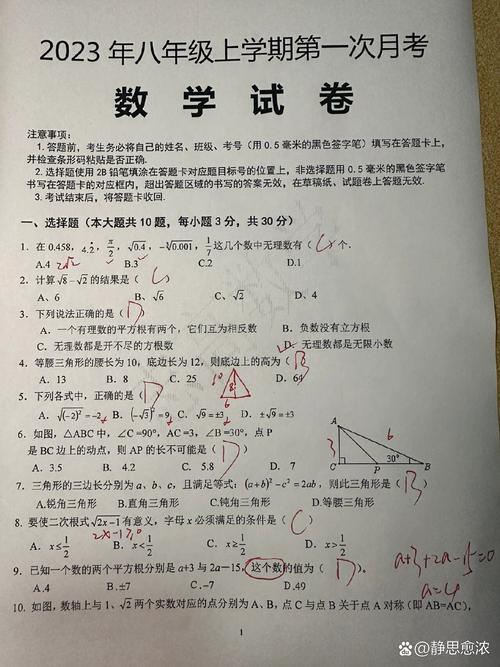 2023 年八年级上学期第一次月考
数 学 试 卷
注意事项：
1. 答题前，考生务必将自己的姓名、班级、考号（用 0.5 毫米的黑色签字笔）填写在答题卡上，
并检查条形码粘贴是否正确.
2. 选择题使用 2B 铅笔填涂在答题卡对应题目标号的位置上，非选择题用 0.5 毫米的黑色签字笔
书写在答题卡的对应框内，超出答题区域的书写的答案无效，在草稿纸、试题卷上答题无效.
3. 考试结束后，将答题卡收回.
一、选择题（本大题共 10 题，每小题 3 分，共 30 分）
1. 在 0.458，4.2̇，π/2，√0.4，-∛0.001，1/7 这几个数中无理数有（ C ）个.
A.4 B.3 C.2 D.1
2√2
2. 计算√8-√2 的结果是（ C ）
A、6 B、√6 C、√2 D、4
3. 下列说法正确的是（ D ）
A．一个有理数的平方根有两个，它们互为相反数 B．负数没有立方根
C．无理数都是开不尽的方根数 D．无理数都是无限小数
4. 等腰三角形的腰长为 10，底边长为 12，则底边上的高为（ B ）
A．13 B．8 C．25 D．64
10 8 6
5. 下列各式中，正确的是（ D ）
A．√(-2)²=-2 B．(-√3)²=9 C．√9=±3 D．±√9=±3
6. 如图，△ABC 中，∠C =90°，AC =3，∠B =30°，点 P
是 BC 边上的动点，则 AP 的长不可能是（ D ）
A．3.5 B．4.2 C．5.8 D．7
A 3 6 30° C P B
7. 三角形的三边长分别为 a、b、c，且满足等式：(a+b)²-c²=2ab，则此三角形是（ B ）
A.锐角三角形 B.直角三角形 C.钝角三角形 D.等腰三角形
8. 要使二次根式√2x-1有意义，字母 x 必须满足的条件是（ C ）
2x-1≥0
A．x≤1/2 B．x<1/2 C．x≥1/2 D．x>1/2
9. 已知一个数的两个平方根分别是 a+3 与 2a-15，这个数的值为（ D ）。
a+3+2a-15=0
A.4 B.±7 C.-7 D.49
a=4
10. 如图，数轴上与 1、√2 两个实数对应的点分别为 A、B，点 C 与点 B 关于点 A 对称（即 AB=AC），
1
@静思愈浓